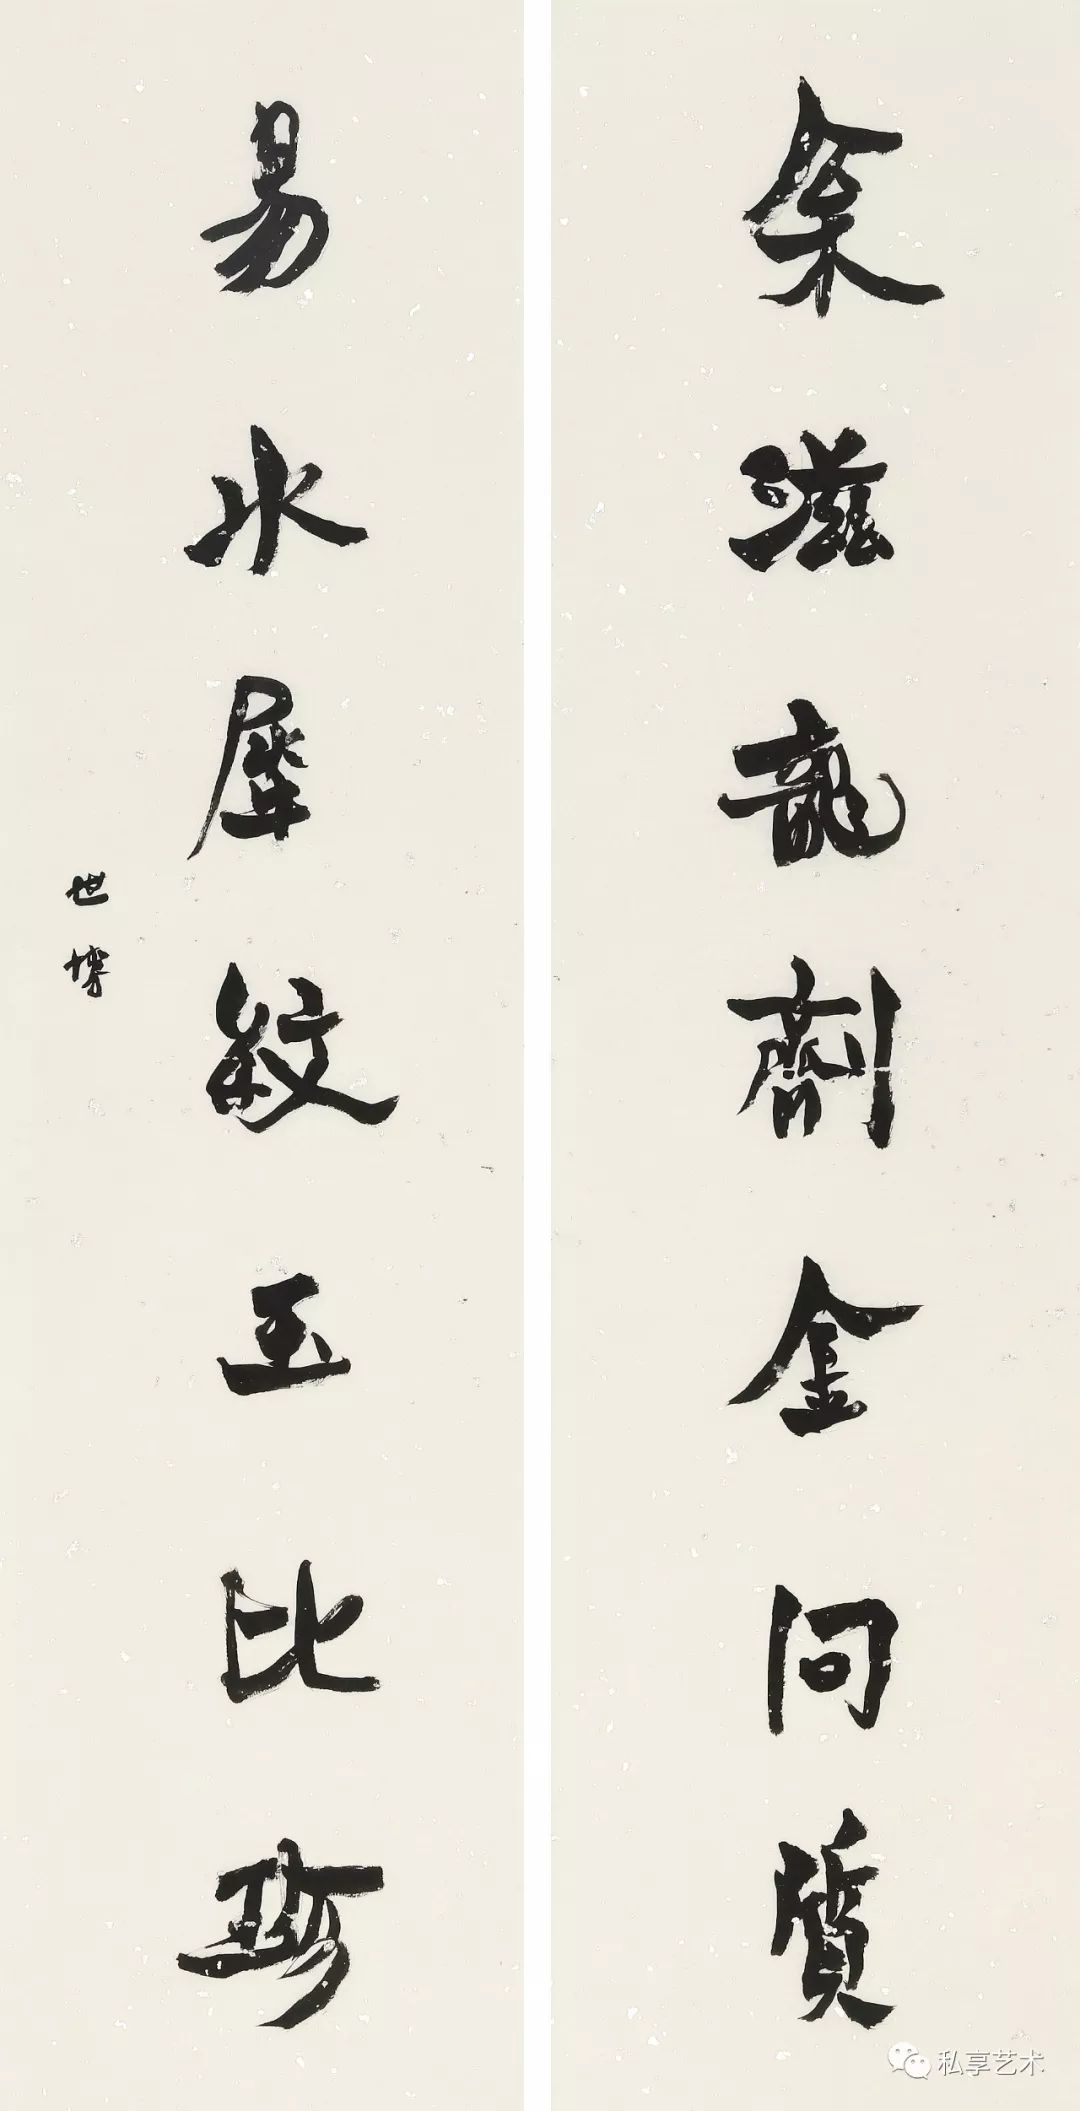 余滋龍劑金同質
易水犀紋玉比珍
世
私享艺术